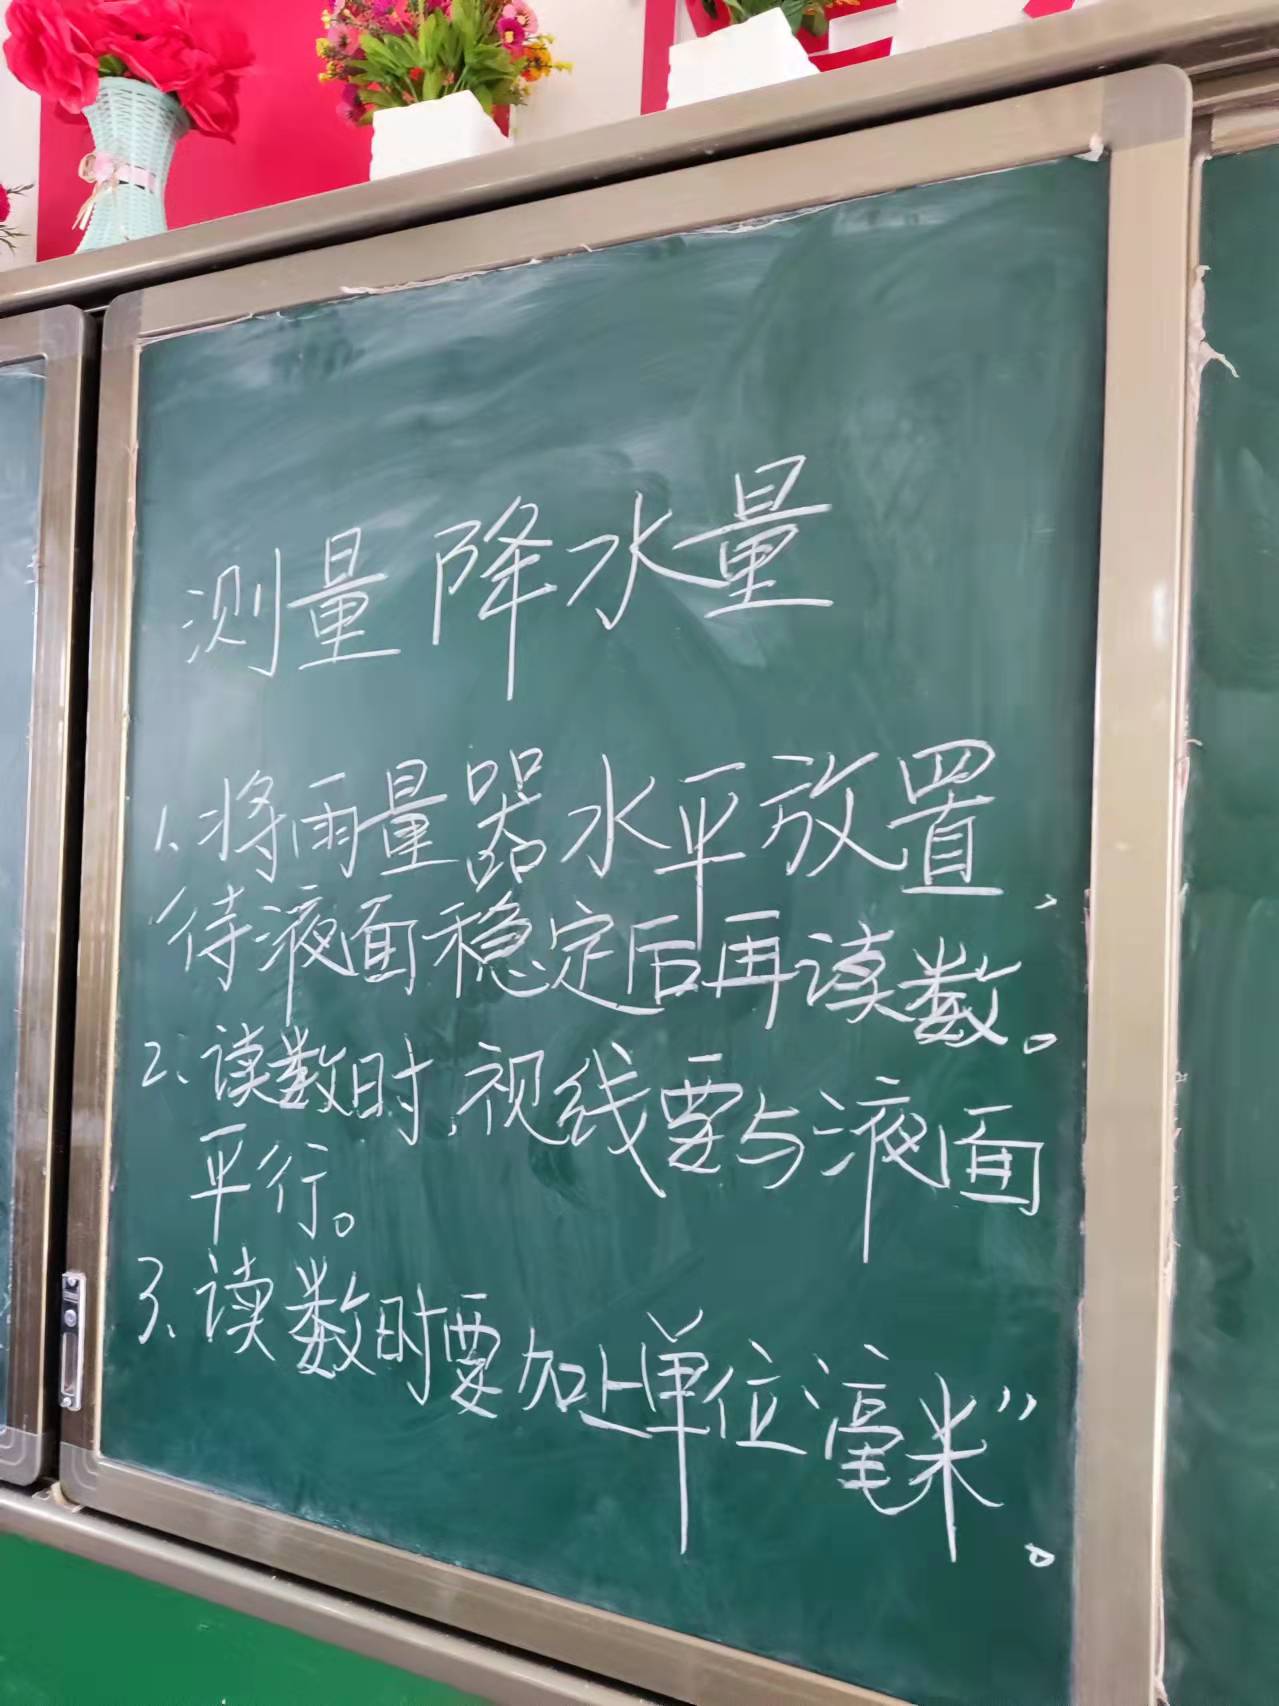 测量降水量
1、将雨量器水平放置,
待液面稳定后再读数。
2、读数时,视线要与液面
平行。
3、读数时要加上单位“毫米”。